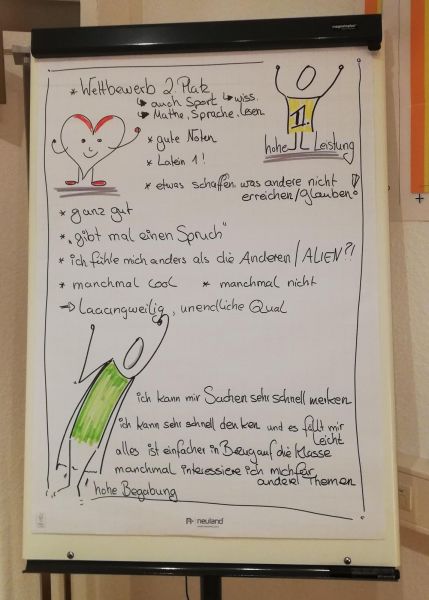 * Wettbewerb 2. Platz
↳ auch Sport, ↳ wiss.
↳ Mathe, Sprache, lesen
* gute Noten
* Latein 1!
1.
hohe Leistung
* etwas schaffen was andere nicht
erreichen/glauben!
* ganz gut
* „gibt mal einen Spruch"
* ich fühle mich anders als die Anderen/ALIEN?!
* manchmal cool * manchmal nicht
⇒ Laaaangweilig, unendliche Qual
ich kann mir Sachen sehr schnell merken
ich kann sehr schnell denken und es fällt mir
leicht
alles ist einfacher in Bezug auf die Klasse
manchmal interessiere ich mich für
andere Themen
hohe Begabung
neuland